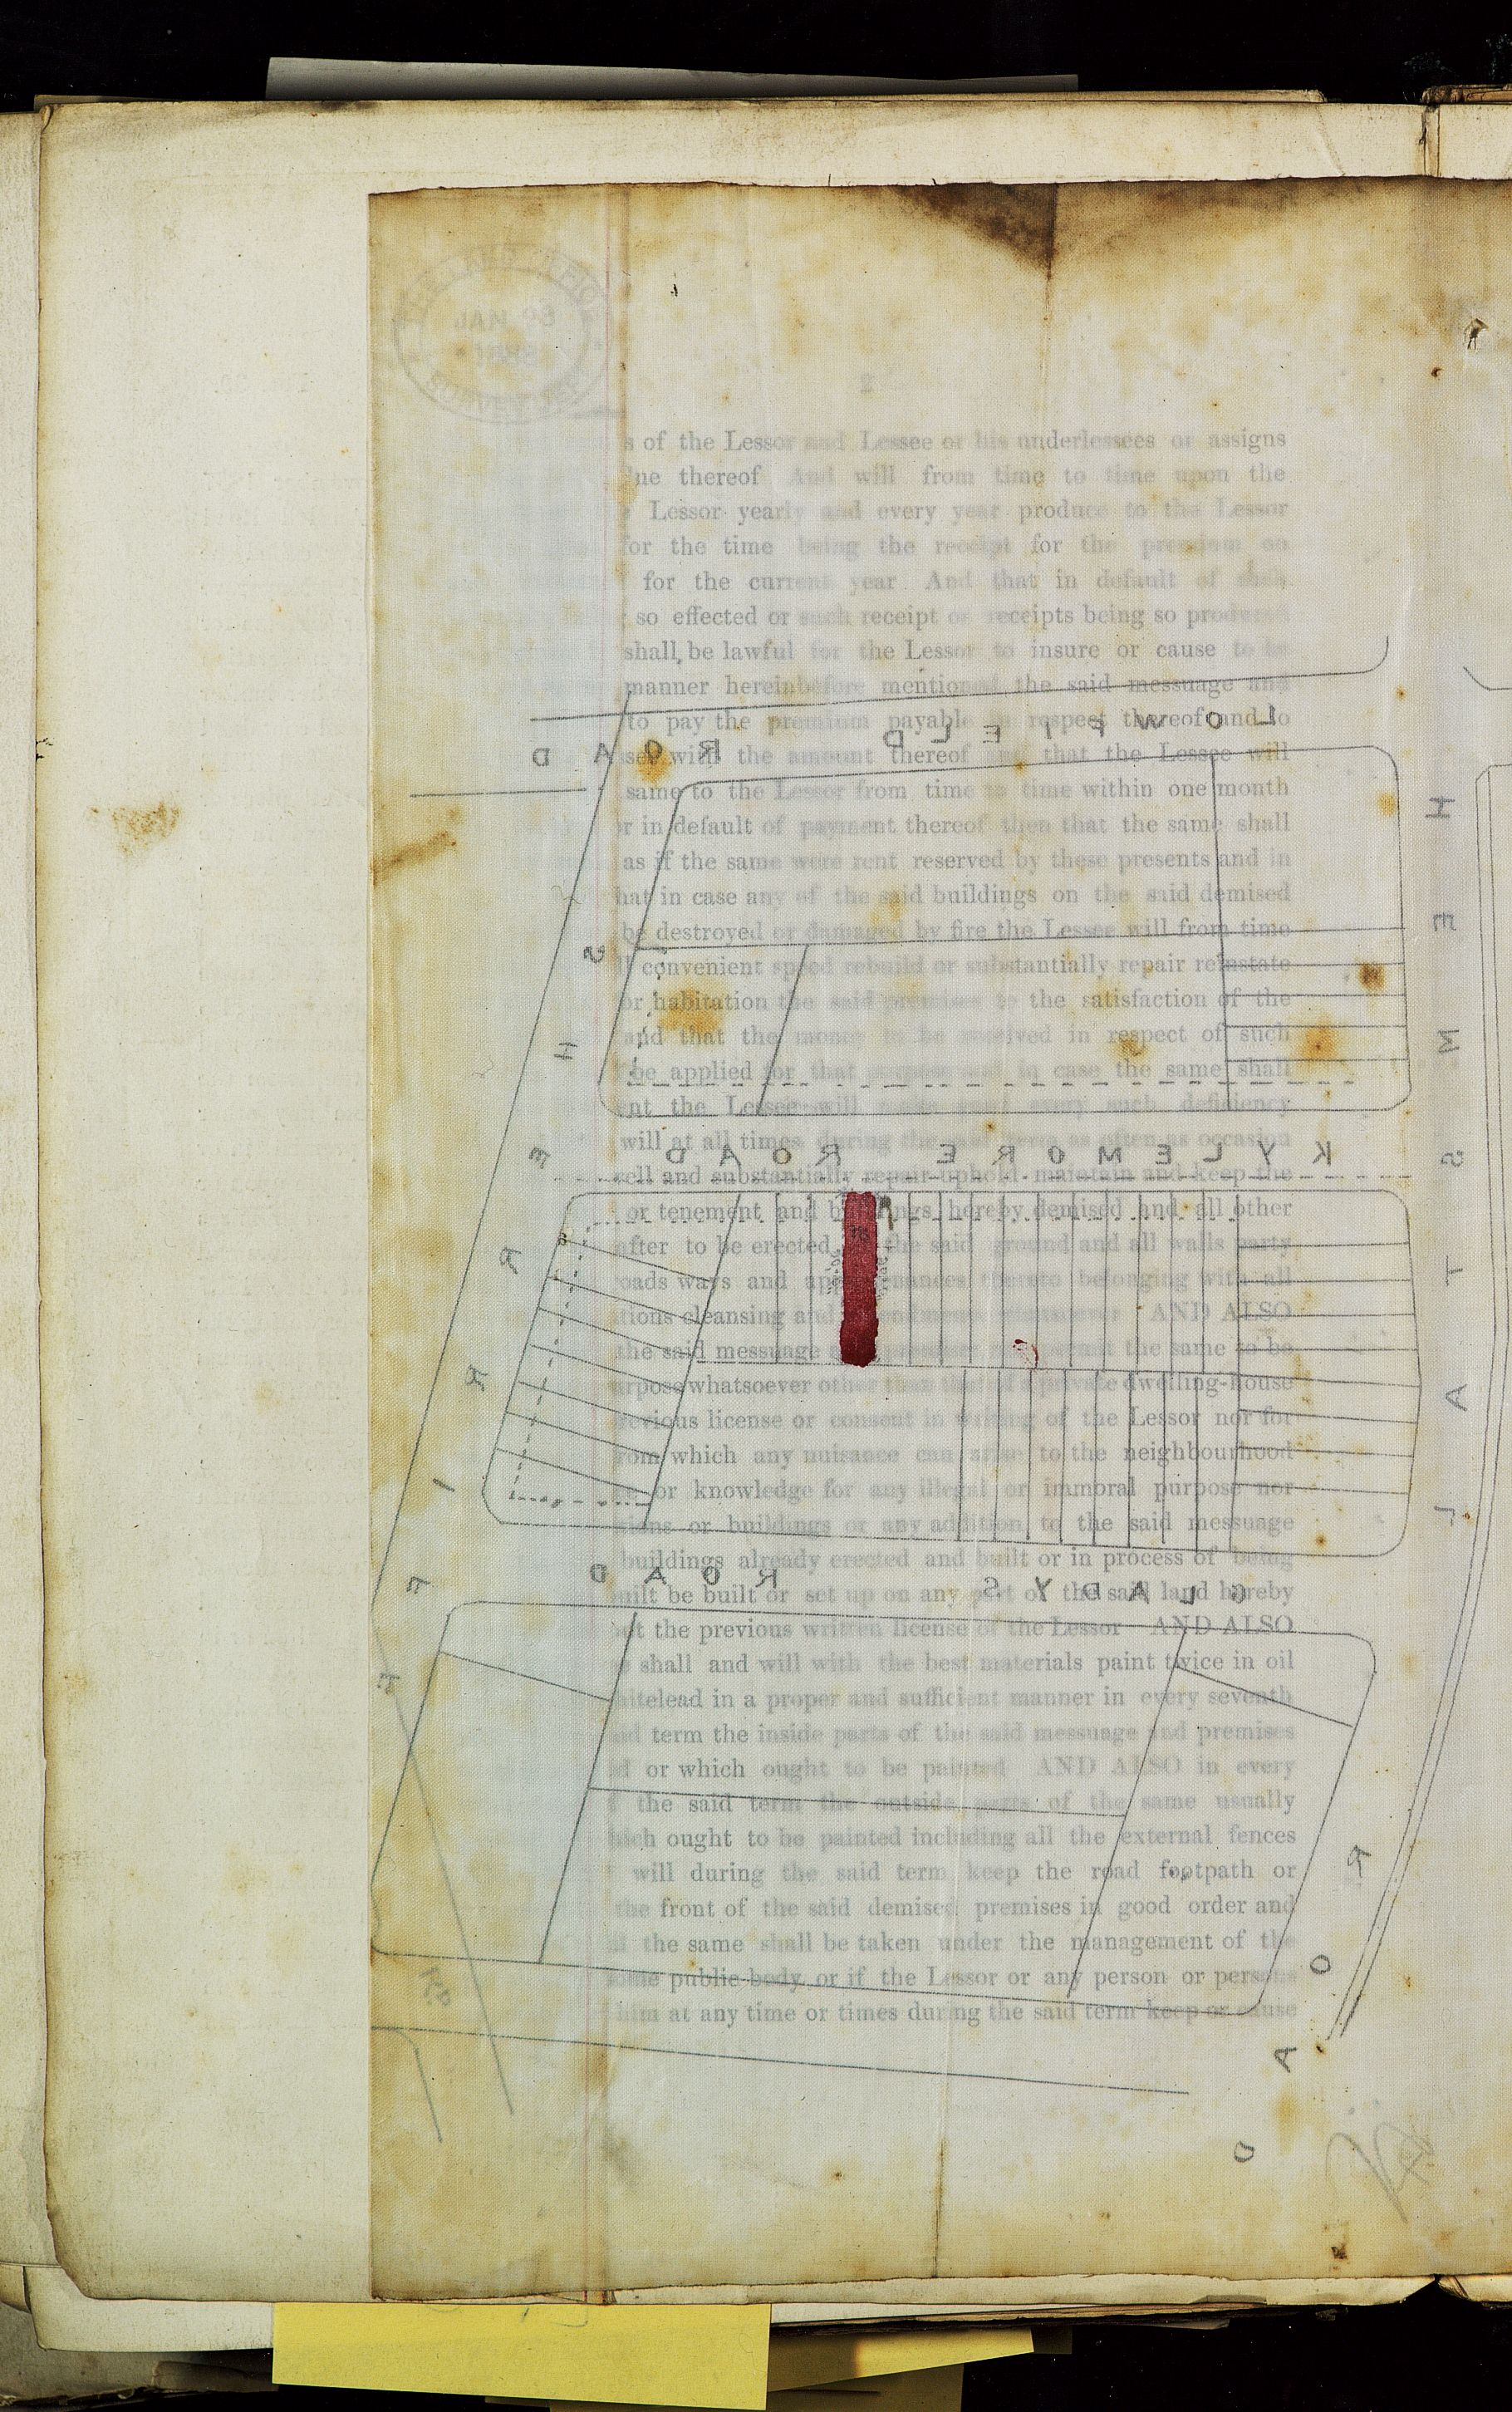 s of the Lessor and Lessee or his underlessees or assigns
ne thereof And will from time to time upon the
Lessor yearly and every year produce to the Lessor
for the time being the receipt for the premium on
for the current year And that in default of such
so effected or such receipt or receipts being so produced
shall be lawful for the Lessor to insure or cause to be
manner hereinbefore mentioned the said messuage and
to pay the premium payable in respect thereof and to
LOWFIELD ROAD
with the amount thereof and that the Lessee will
same to the Lessor from time to time within one month
or in default of payment thereof then that the same shall
as if the same were rent reserved by these presents and in
hat in case any of the said buildings on the said demised
be destroyed or damaged by fire the Lessee will from time
convenient speed rebuild or substantially repair reinstate
or habitation the said premises to the satisfaction of the
and that the money to be received in respect of such
be applied for that purpose and in case the same shall
ent the Lessee will make good every such deficiency
will at all times during the said term as often as occasion
KYLEMORE ROAD
ell and substantially repair uphold maintain and keep the
or tenement and buildings hereby demised and all other
after to be erected on the said ground and all walls party
oads ways and appurtenances thereto belonging with all
cleansing and amendments whatsoever AND ALSO
the said messuage or premises the same to be
urpose whatsoever other than that of a private dwelling-house
revious license or consent in writing of the Lessor nor for
rom which any nuisance can arise to the neighbourhood
or knowledge for any illegal or immoral purpose nor
or buildings or any addition to the said messuage
buildings already erected and built or in process of being
GLADYS ROAD
uilt be built or set up on any part of the said land hereby
ut the previous written license of the Lessor AND ALSO
shall and will with the best materials paint twice in oil
hitelead in a proper and sufficient manner in every seventh
aid term the inside parts of the said messuage and premises
or which ought to be painted AND ALSO in every
the said term the outside parts of the same usually
hich ought to be painted including all the external fences
will during the said term keep the road footpath or
the front of the said demised premises in good order and
the same shall be taken under the management of the
some public body or if the Lessor or any person or persons
him at any time or times during the said term keep or cause
HEMSTAL ROAD
SHERRIFF